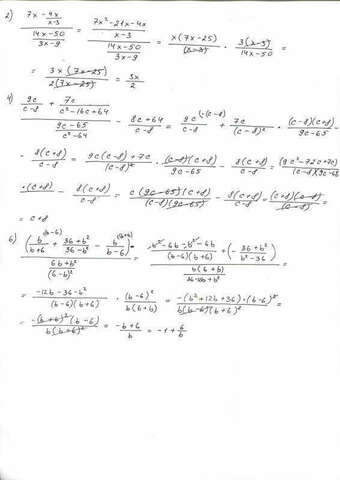 2) (7x - 4x/(x-3)) / ((14x-50)/(3x-9)) = ((7x²-21x-4x)/(x-3)) / ((14x-50)/(3x-9)) = x(7x-25)/(x-3) · 3(x-3)/(14x-50) =
= 3x(7x-25)/(2(7x-25)) = 3x/2
4) (9c/(c-8) + 7c/(c²-16c+64)) / ((9c-65)/(c²-64)) - (8c+64)/(c-8) = (9c^{·(c-8)}/(c-8) + 7c/(c-8)²) · (c-8)(c+8)/(9c-65) -
- 8(c+8)/(c-8) = (9c(c-8)+7c)/(c-8)² · (c-8)(c+8)/(9c-65) - 8(c+8)/(c-8) = (9c²-72c+7c)/((c-8)(9c-65)) ·
· (c+8) - 8(c+8)/(c-8) = c(9c-65)(c+8)/((c-8)(9c-65)) - 8(c+8)/(c-8) = (c+8)(c-8)/(c-8) =
= c+8
6) (b^{(b-6)}/(b+6) + (36+b²)/(36-b²) - b^{(b+6)}/(b-6)) : (6b+b²)/(6-b)² = ((b²-6b-b²-6b)/((b-6)(b+6)) + (-(36+b²)/(b²-36))) / (b(6+b)/(36-12b+b²)) =
= (-12b-36-b²)/((b-6)(b+6)) · (b-6)²/(b(6+b)) = -(b²+12b+36)·(b-6)²/(b(b-6)(b+6)²) =
= -(b+6)²(b-6)/(b(b+6)²) = (-b+6)/b = -1+6/b